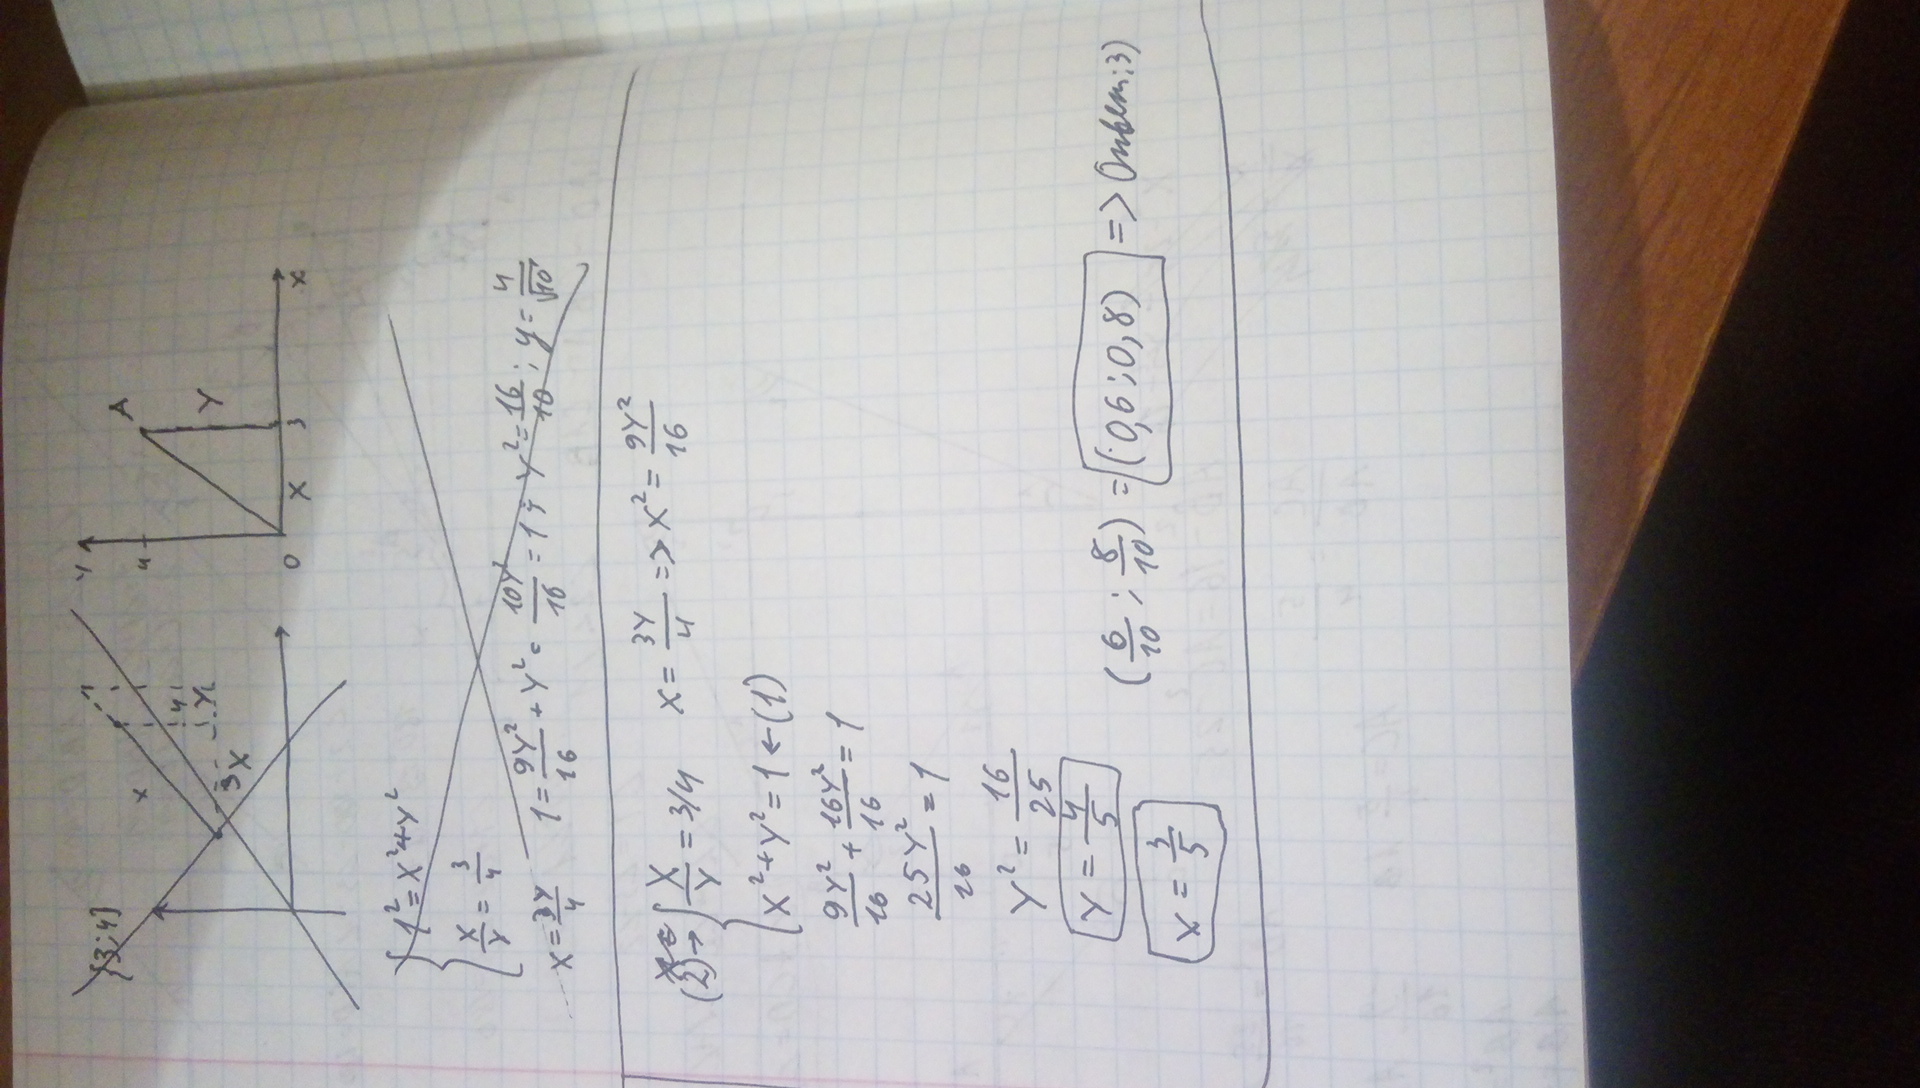 {3;4}
x
3
X
4
Y
Y
4
A
Y
X
3
0
X
{1² = x²+y²
x/y = 3/4
x = 3y/4
1 = 9y²/16 + y² = 10y/16 = 1; y² = 16/10; y = 4/√10
(2)→ {X/Y = 3/4 X = 3Y/4 => X² = 9Y²/16
X²+Y² = 1 ← (1)
9Y²/16 + 16Y²/16 = 1
25Y²/16 = 1
Y² = 16/25
Y = 4/5
X = 3/5
(6/10 ; 8/10) = (0,6 ; 0,8) => Ответ: 3)